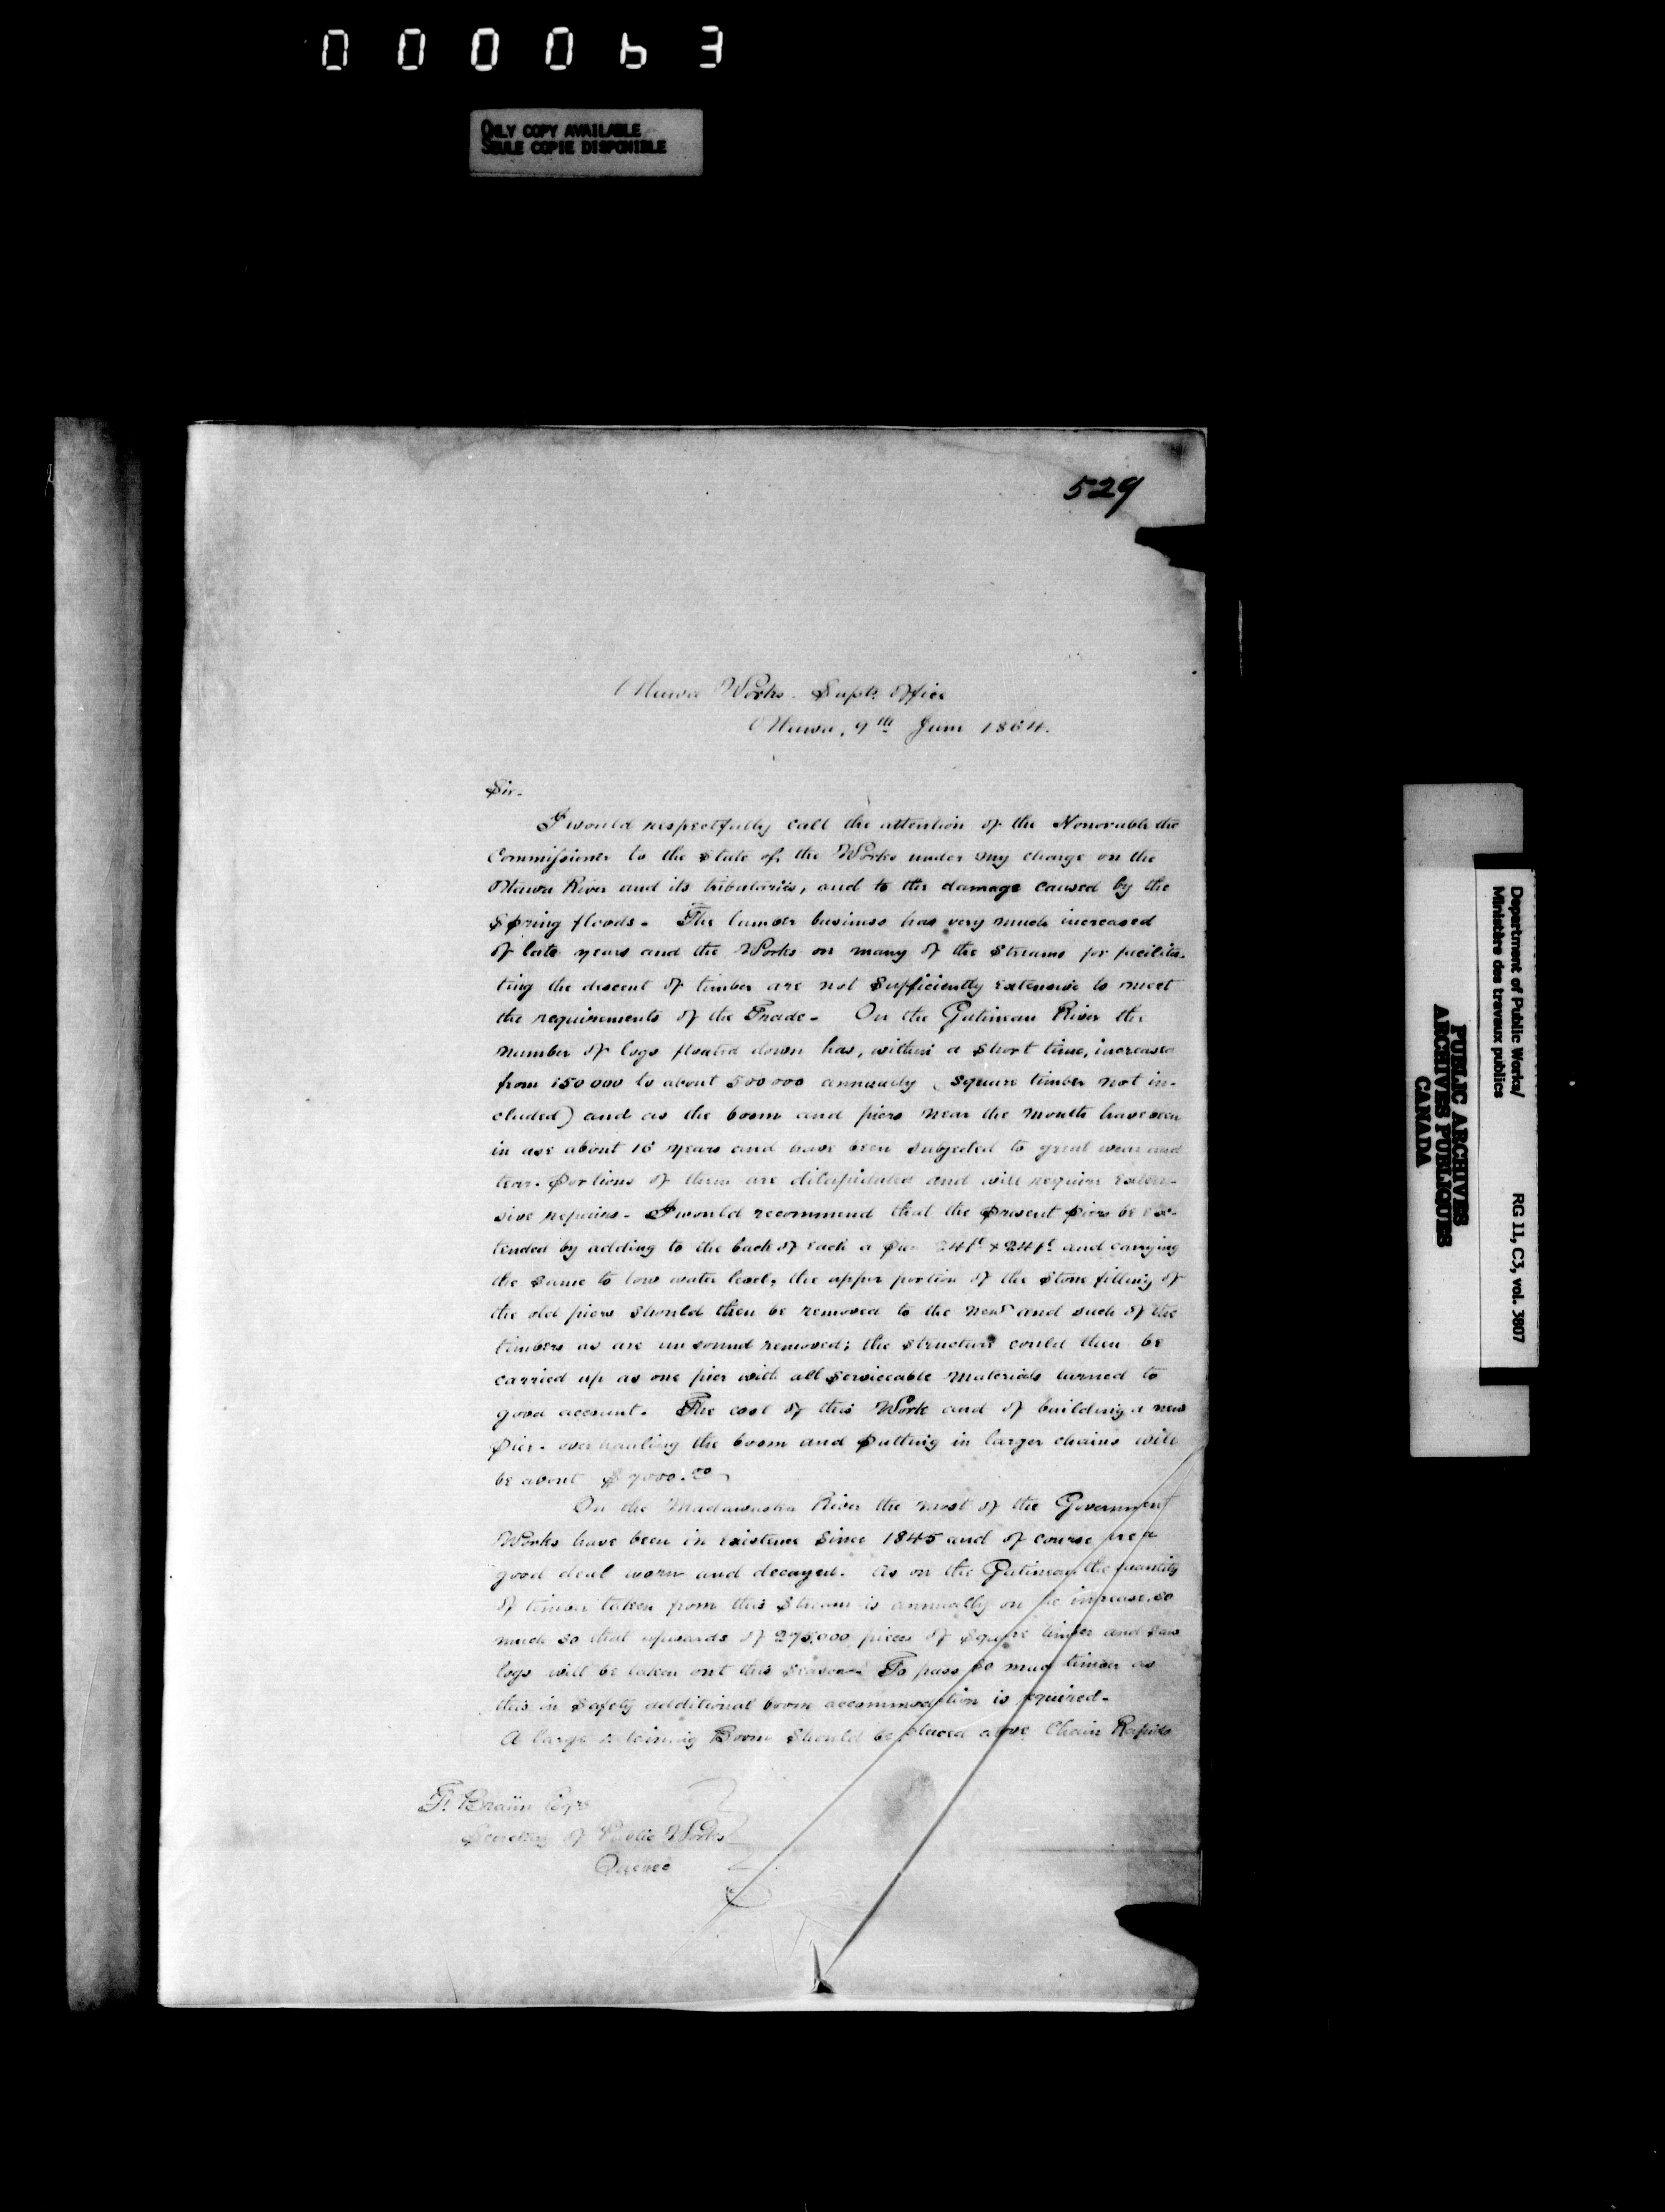 000063
ONLY COPY AVAILABLE
SEULE COPIE DISPONIBLE
529
Ottawa Works. Supts. Office
Ottawa, 9th June 1864.
Sir.
I would respectfully call the attention of the Honorable the
Commissioner to the state of the Works under my charge on the
Ottawa River and its tributaries, and to the damage caused by the
Spring floods. The lumber business has very much increased
of late years and the Works on many of the Streams for facilita-
ting the descent of timber are not Sufficiently Extensive to meet
the requirements of the Trade. On the Gatineau River the
number of logs floated down has, within a Short time, increased
from 150 000 to about 500 000 annually (Square timber not in-
cluded) and as the boom and piers near the mouth have been
in use about 16 years and have been Subjected to great wear and
tear. Portions of them are dilapidated and will require Exten-
sive repairs. I would recommend that the present piers be Ex-
tended by adding to the back of Each a Pier 24ft x 24ft and carrying
the Same to low water level, the upper portion of the Stone filling of
the old piers Should then be removed to the new and such of the
timbers as are unsound removed; the Structure could then be
carried up as one pier with all Serviceable Materials turned to
good account. The cost of this Work and of building a new
Pier. overhauling the boom and Putting in larger chains will
be about $ 7000.00
On the Madawaska River the most of the Government
Works have been in Existence Since 1845 and of course are a
good deal worn and decayed. As on the Gatineau the quantity
of timber taken from this Stream is annually on the increase, so
much so that upwards of 275,000 pieces of Square timber and Saw
logs will be taken out this Season. To pass So much timber as
this in Safety additional boom accommodation is required.
A large retaining Boom Should be placed above Chain Rapids
F. Braün Esqre
Secretary of Public Works
Quebec
Department of Public Works/
Ministère des travaux publics
RG 11, C3, vol. 3807
PUBLIC ARCHIVES
ARCHIVES PUBLIQUES
CANADA